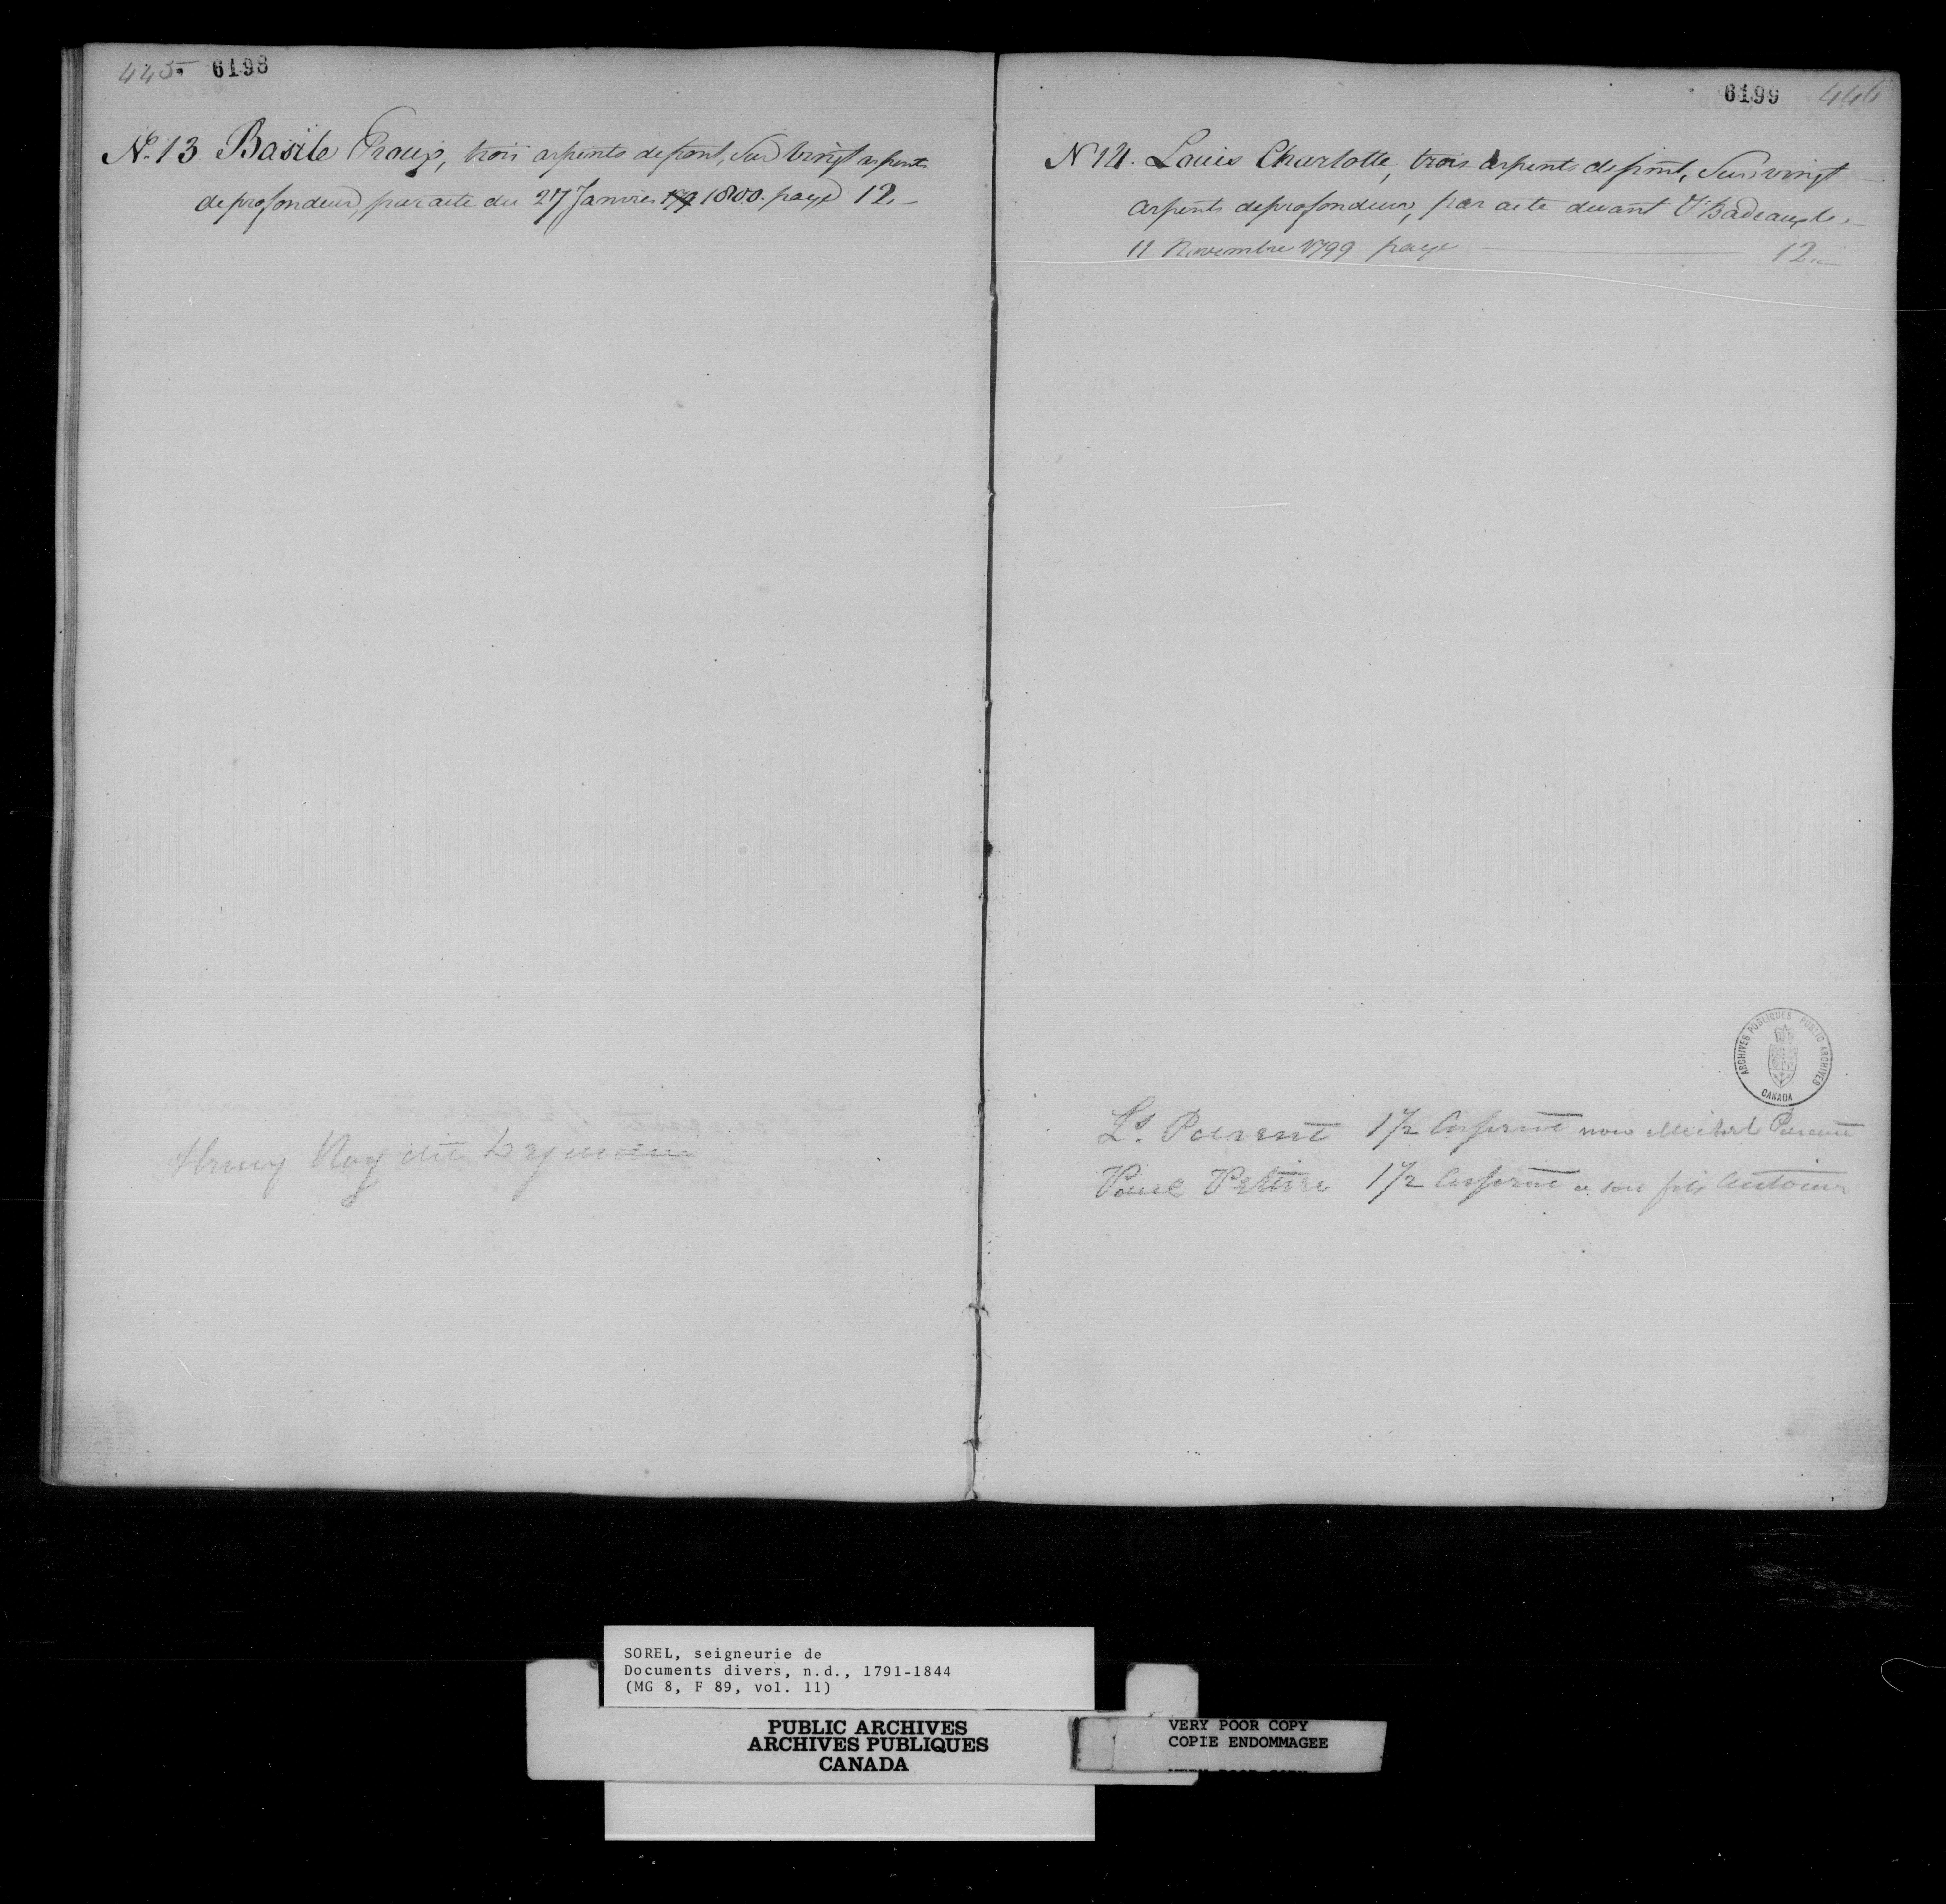 445. 6198
No. 13 Basile Proux, trois arpents de front, sur vingt arpents
de profondeur, par acte du 27 Janvier 179 1800. paye 12.
Henry Roy dit
6199 446
N 14. Louis Charlotte, trois arpents de front, sur vingt
arpents de profondeur, par acte devant Badeaux le
11 Novembre 1799 paye 12
ARCHIVES PUBLIQUES PUBLIC ARCHIVES
CANADA
Ls. Parent 1 1/2 Arpent now Michel Parent
Paul 1 1/2 Arpent a son fils Antoine
SOREL, seigneurie de
Documents divers, n.d., 1791-1844
(MG 8, F 89, vol. 11)
PUBLIC ARCHIVES
ARCHIVES PUBLIQUES
CANADA
VERY POOR COPY
COPIE ENDOMMAGEE
VERY POOR COPY